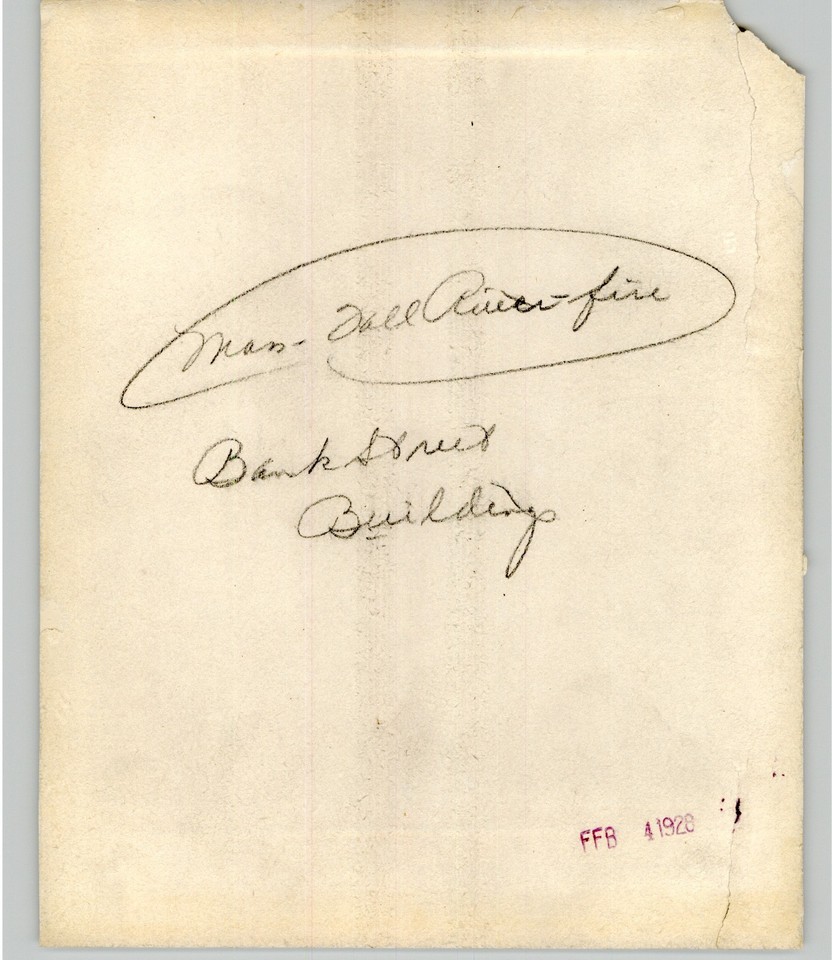 Mass- Fall River-fire
Bank Street
Building
FEB 4 1928